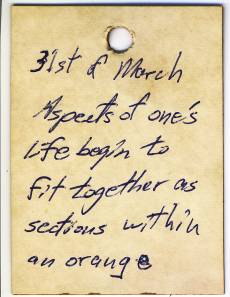 31st of March
Aspects of one's
life begin to
fit together as
sections within
an orange